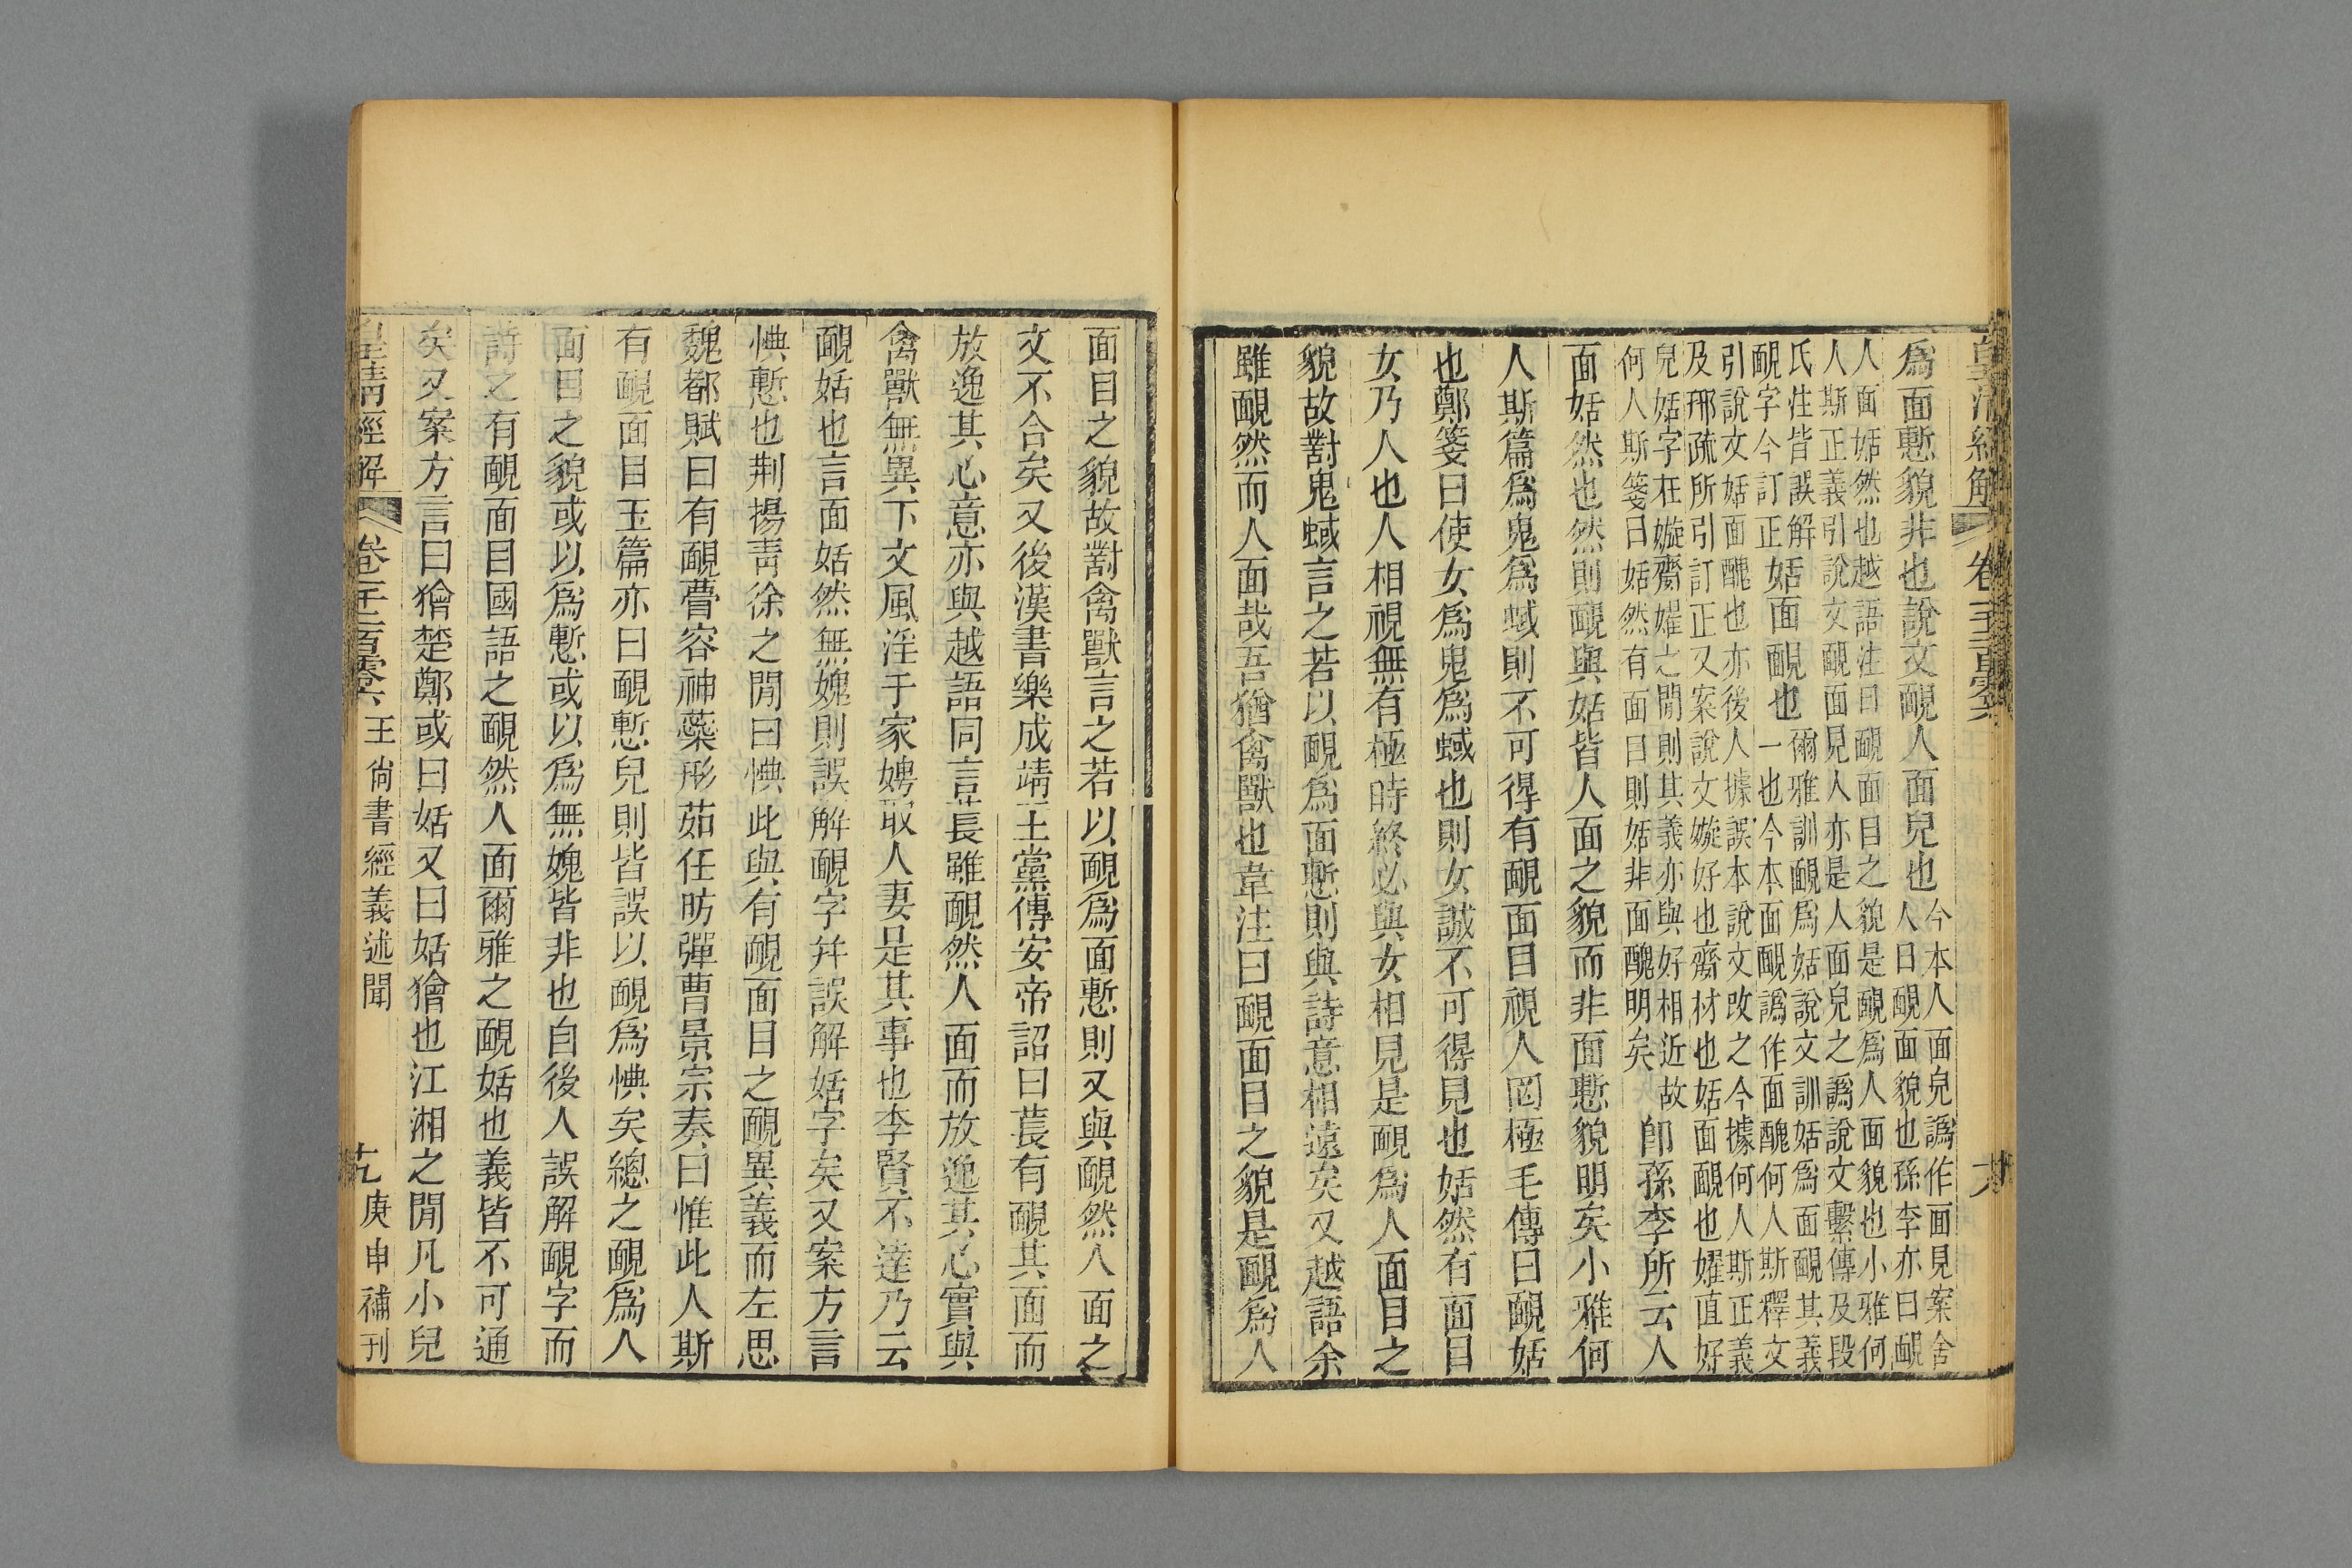 皇清經解
爲面慙貌非也說文靦人面皃也
今本人面皃譌作面見案舍
人曰靦面貌也孫李亦曰靦
人面姡然也越語注曰靦面目之貌是靦爲人面貌也小雅何
人斯正義引說文靦面見人亦是人面皃之譌說文繫傳及段
氏注皆誤解
靦字今訂正
姡面靦也
爾雅訓靦爲姡說文訓姡爲面靦其義
一也今本面靦譌作面醜何人斯釋文
引說文姡面醜也亦後人據誤本說文改之今據何人斯正義
及邢疏所引訂正又案說文嫙好也齌材也姡面靦也嬥直好
皃姡字在嫙齌嬥之閒則其義亦與好相近故
何人斯箋曰姡然有面目則姡非面醜明矣
卽孫李所云人
面姡然也然則靦與姡皆人面之貌而非面慙貌明矣小雅何
人斯篇爲鬼爲蜮則不可得有靦面目視人罔極毛傳曰靦姡
也鄭箋曰使女爲鬼爲蜮也則女誠不可得見也姡然有面目
女乃人也人相視無有極時終必與女相見是靦爲人面目之
貌故對鬼蜮言之若以靦爲面慙則與詩意相遠矣又越語余
雖靦然而人面哉吾猶禽獸也韋注曰靦面目之貌是靦爲人
面目之貌故對禽獸言之若以靦爲面慙則又與靦然人面之
文不合矣又後漢書樂成靖王黨傳安帝詔曰萇有靦其面而
放逸其心意亦與越語同言萇雖靦然人面而放逸其心實與
禽獸無異下文風淫于家娉取人妻是其事也李賢不達乃云
靦姡也言面姡然無媿則誤解靦字幷誤解姡字矣又案方言
㥏慙也荆揚青徐之閒曰㥏此與有靦面目之靦異義而左思
魏都賦曰有靦瞢容神蘂形茹任昉彈曹景宗奏曰惟此人斯
有靦面目玉篇亦曰靦慙皃則皆誤以靦爲㥏矣總之靦爲人
面目之貌或以爲慙或以爲無媿皆非也自後人誤解靦字而
詩之有靦面目國語之靦然人面爾雅之靦姡也義皆不可通
矣又案方言曰獪楚鄭或曰姡又曰姡獪也江湘之閒凡小兒
皇清經解
卷一千二百零六
王尚書經義述聞
庚申補刊